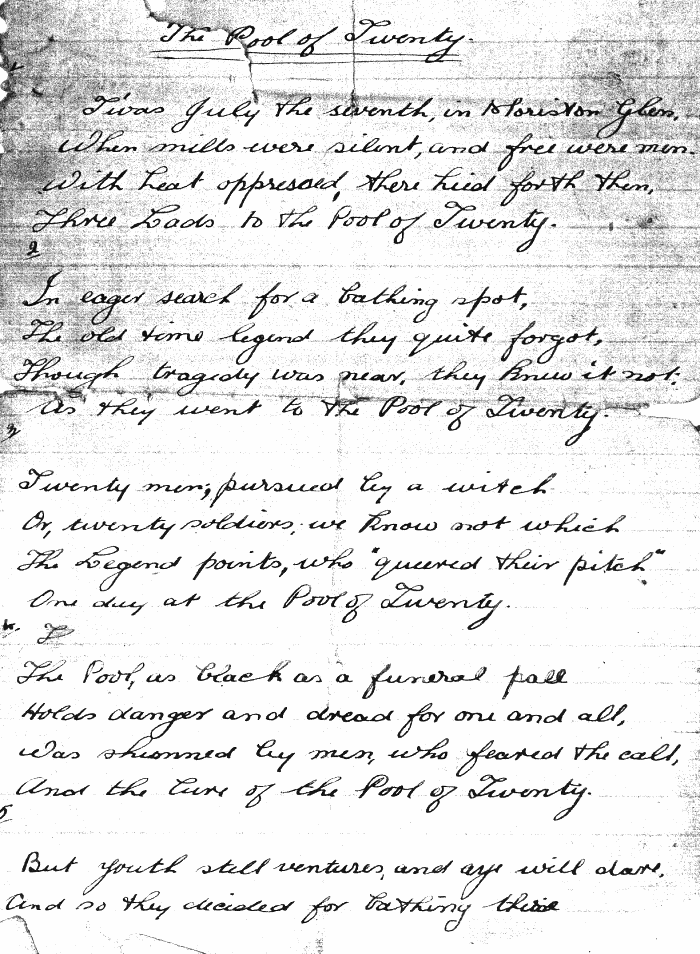 The Pool of Twenty.
1
Twas July the seventh, in Moriston Glen,
When mills were silent, and free were men.
With heat oppressed, there hied forth then,
Three Lads to the Pool of Twenty.
2
In eager search for a bathing spot,
The old time legend they quite forgot,
Though tragedy was near, they knew it not;
As they went to the Pool of Twenty.
3
Twenty men; pursued by a witch
Or, twenty soldiers, we know not which
The Legend points, who "queered their pitch"
One day at the Pool of Twenty.
4.
The Pool, as black as a funeral pall
Holds danger and dread for one and all,
Was shunned by men, who feared the call,
And the lure of the Pool of Twenty.
5
But youth still ventures, and aye will dare,
And so they decided for bathing there